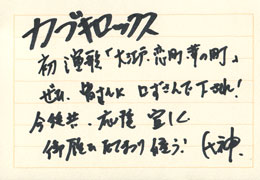 カブキロックス
初演歌「大江戸恋町夢の町」
ぜひ、皆さんに口ずさんで下され!
今後共、応援宜しく
御願いたてまつり候う!